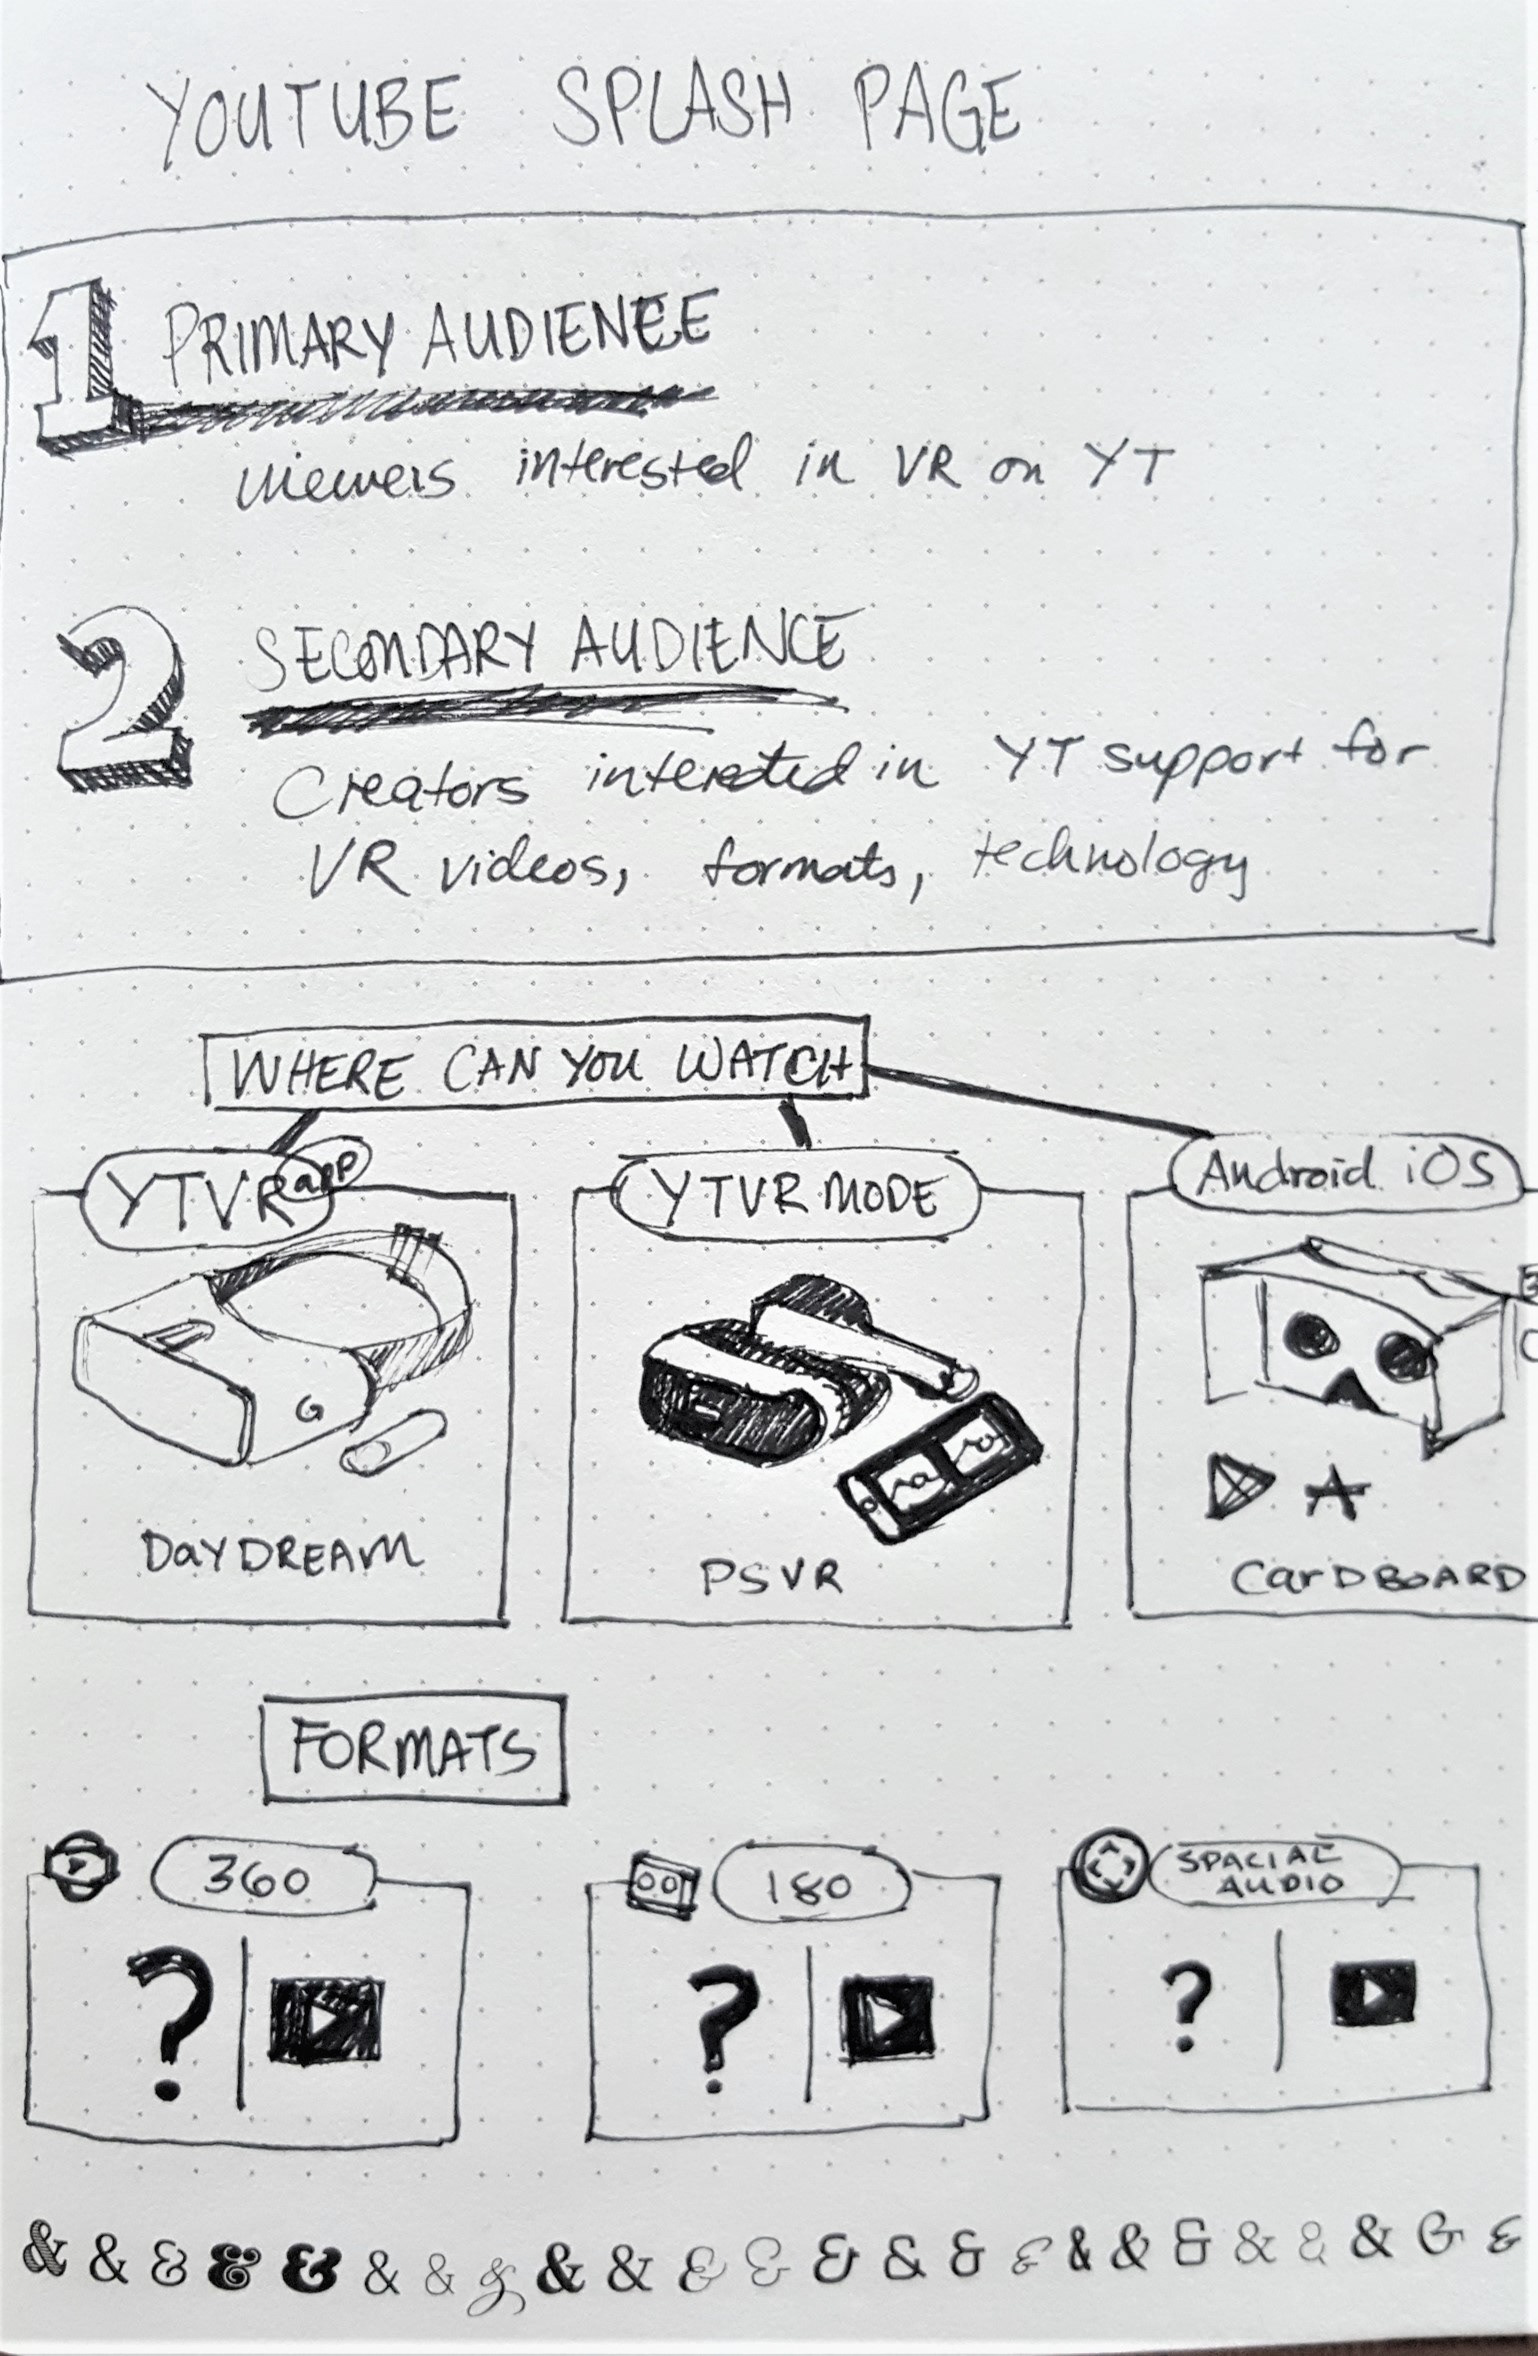 YOUTUBE SPLASH PAGE
1 PRIMARY AUDIENCE
viewers interested in VR on YT
2 SECONDARY AUDIENCE
Creators interested in YT support for
VR videos, formats, technology
WHERE CAN YOU WATCH
YTVR app
YTVR MODE
Android iOS
G
DAYDREAM
PSVR
CARDBOARD
FORMATS
360
180
SPACIAL
AUDIO
? ? ?
& & & & & & & & & & & & & & & & & & & & & & & &